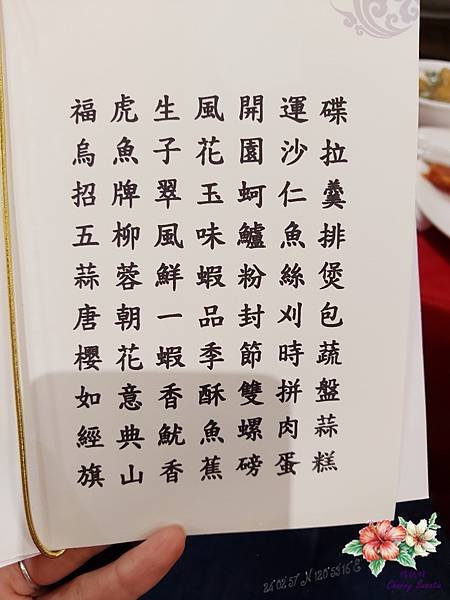 福虎生風開運碟
烏魚子花園沙拉
招牌翠玉蚵仁羹
五柳風味鱸魚排
蒜蓉鮮蝦粉絲煲
唐朝一品封刈包
櫻花蝦季節時蔬
如意香酥雙拼盤
經典魷魚螺肉蒜
旗山香蕉磅蛋糕
24°02'57" N 120°53'516" E
Cherry Sweets